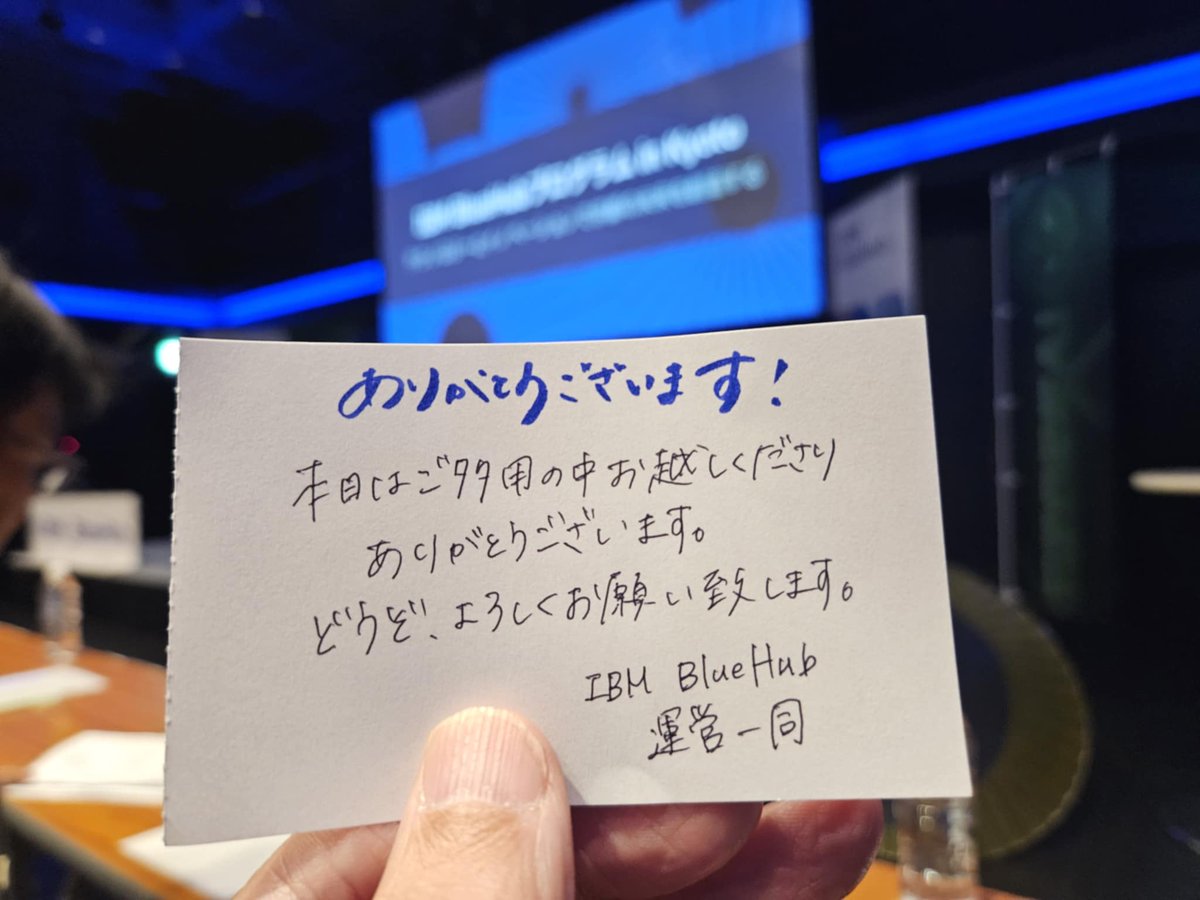 プログラム in Kyoto
ありがとうございます!
本日はご多用の中お越しくださり
ありがとうございます。
どうぞ、よろしくお願い致します。
IBM BlueHub
運営一同